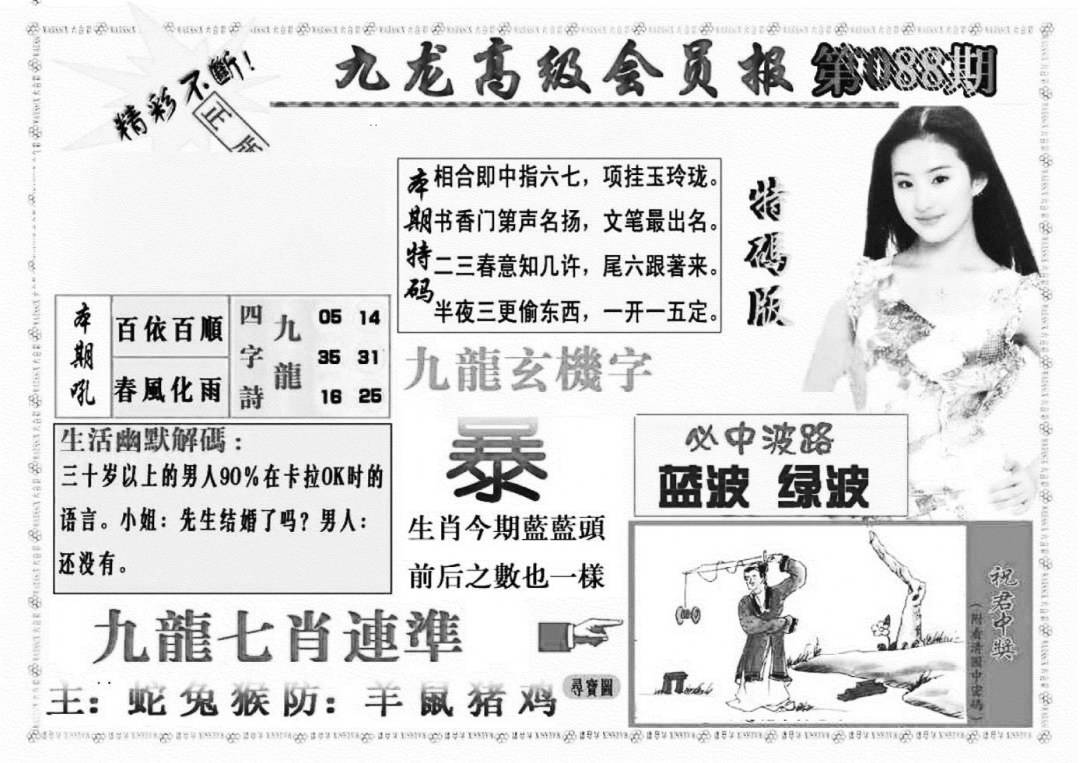 精彩不斷!
正版
九龙高级会员报
第088期
本期特码
相合即中指六七，项挂玉玲珑。
书香门第声名扬，文笔最出名。
二三春意知几许，尾六跟著来。
半夜三更偷东西，一开一五定。
特碼版
本期吼
百依百順
春風化雨
四字詩
九龍
05 14
35 31
16 25
九龍玄機字
暴
生肖今期藍藍頭
前后之數也一樣
生活幽默解碼：
三十岁以上的男人90%在卡拉OK时的
语言。小姐：先生结婚了吗？男人：
还没有。
必中波路
蓝波 绿波
九龍七肖連準
主：蛇兔猴防：羊鼠猪鸡
尋寶圖
祝君中獎
（附看清圖中密碼）